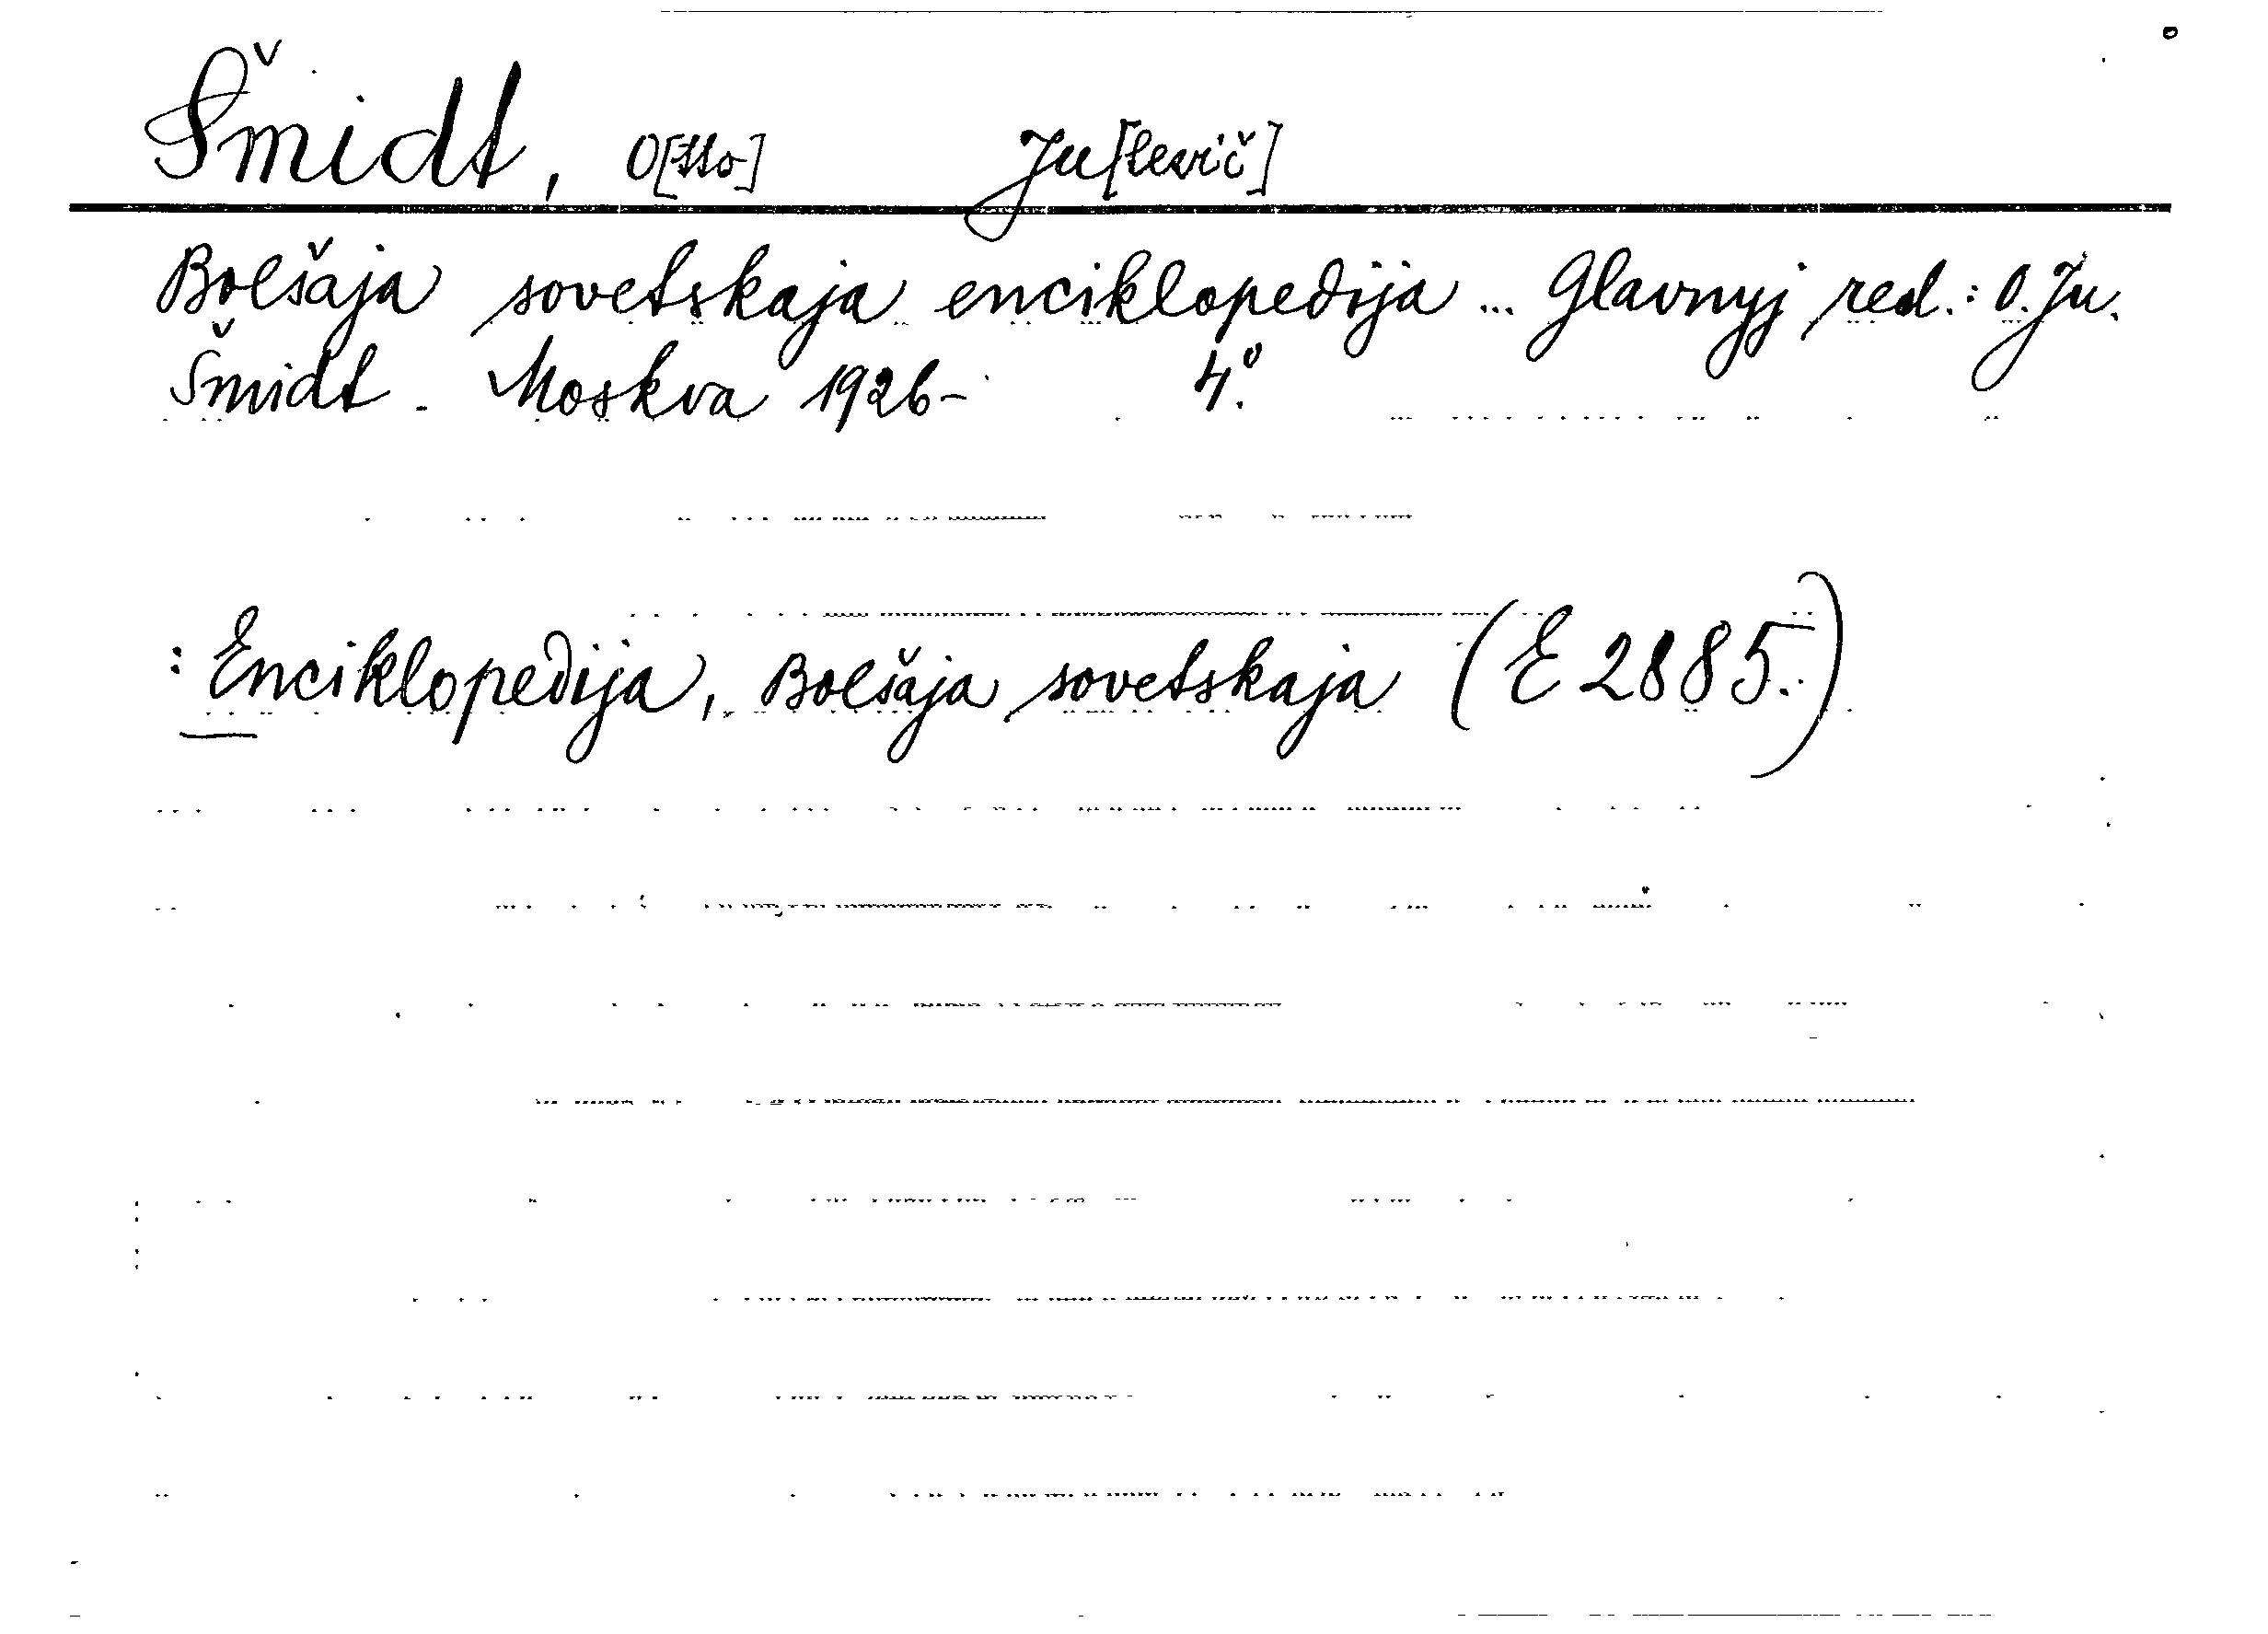 Šmidt, O[tto] Ju[levič]
Bolšaja sovetskaja enciklopedija ... Glavnyj red.: O. Ju.
Šmidt. Moskva 1926- 4.°
: Enciklopedija, Bolšaja sovetskaja (E 2885.)